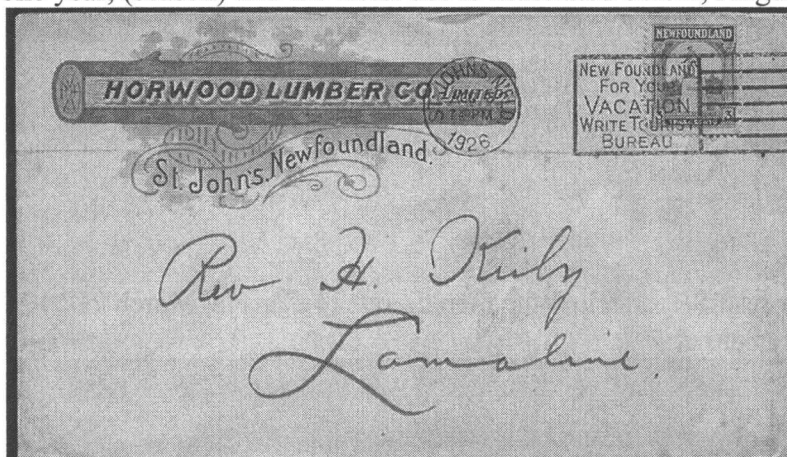 HORWOOD LUMBER CO.
LIMITED
St. John's, Newfoundland.
1926
NEWFOUNDLAND
NEW FOUNDLAND
FOR YOUR
VACATION
WRITE TOURIST
BUREAU
Rev H. Kirby
Lamaline.